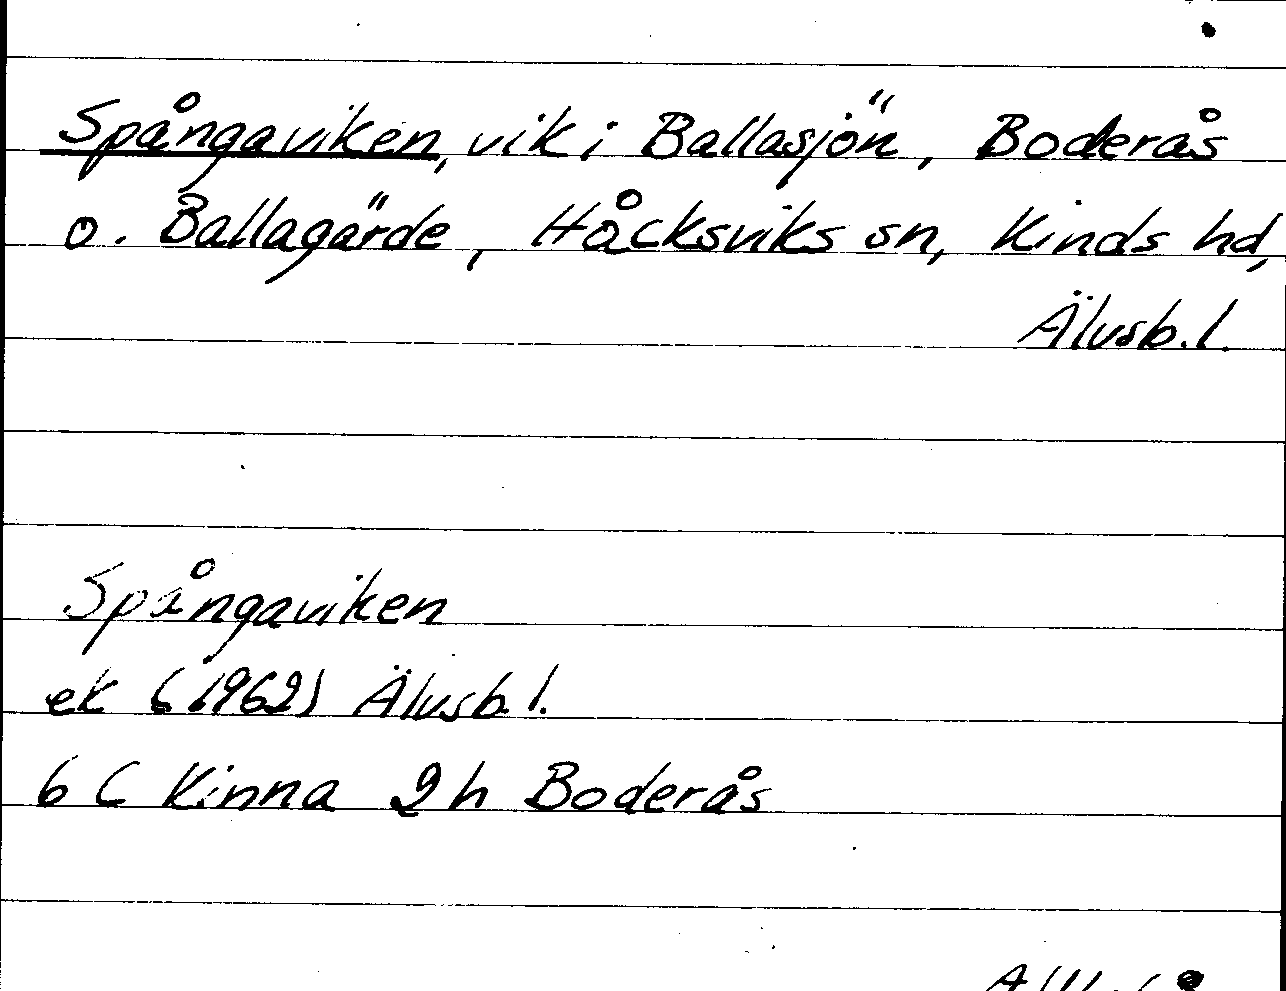 Spångaviken, vik i Ballasjön, Boderås
o. Ballagärde, Håcksviks sn, Kinds hd,
Älvsb. l.
Spångaviken
ek (1962) Älvsb. l.
6 C Kinna 2 h Boderås